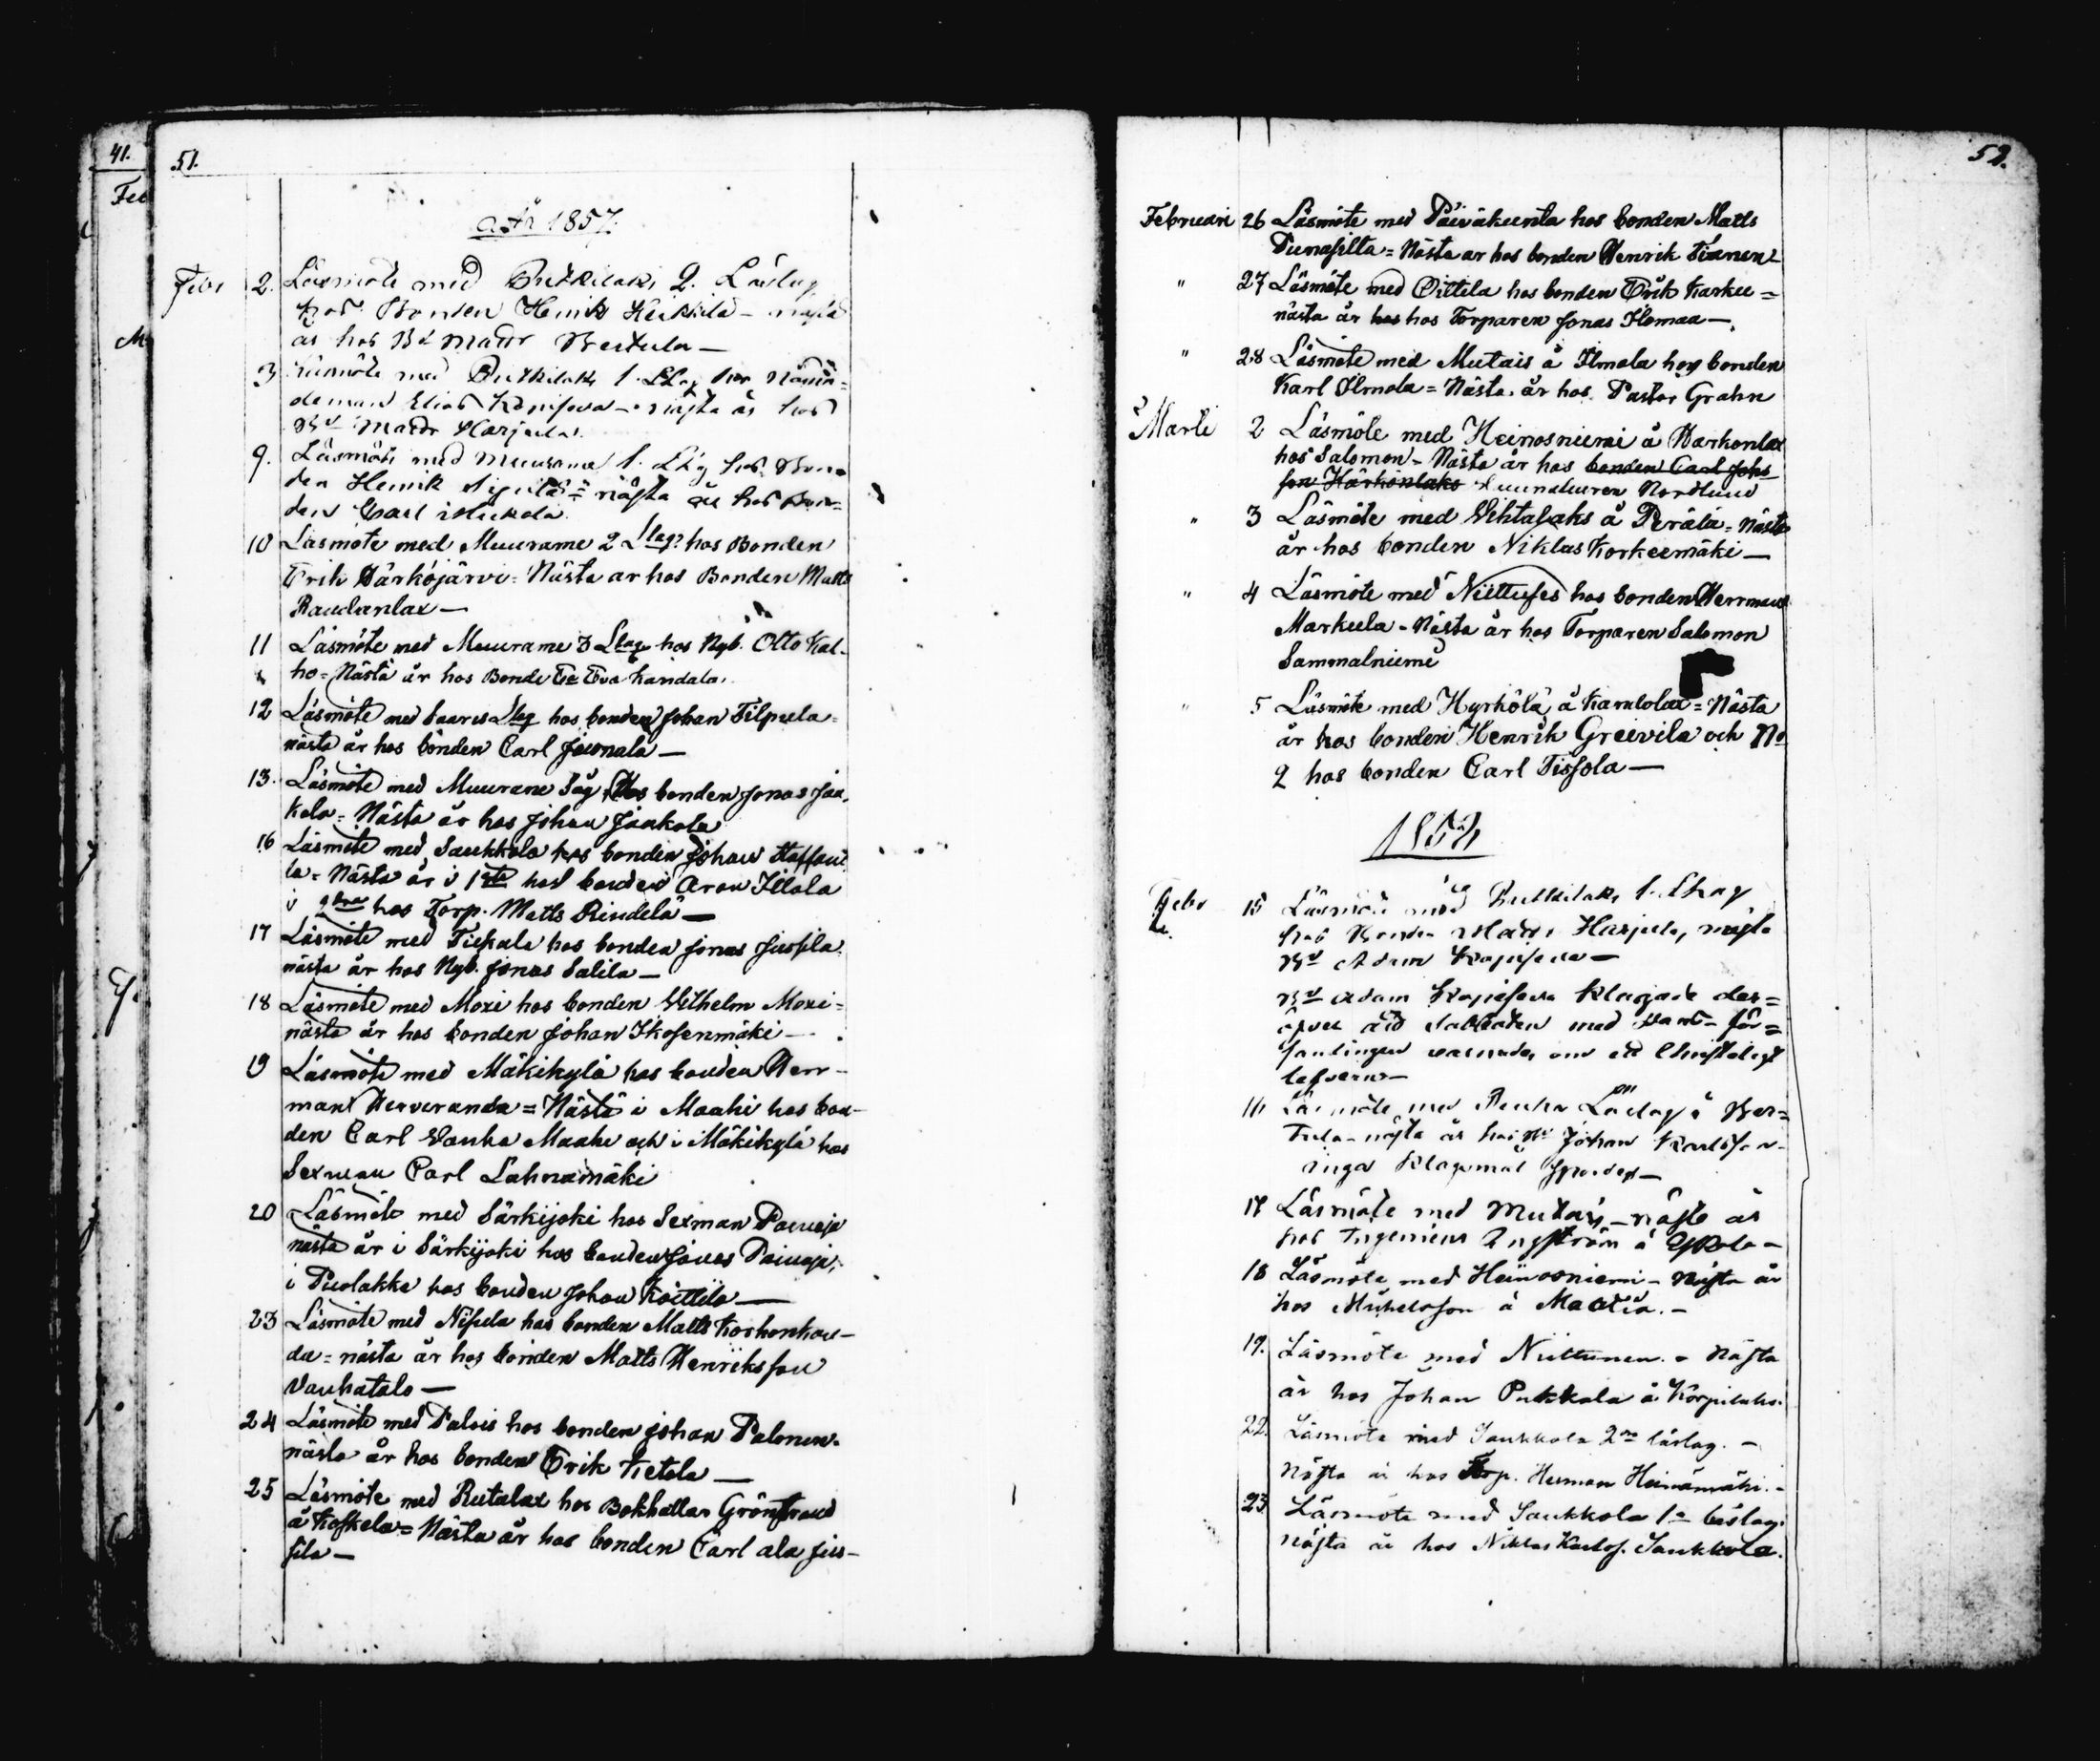 41.
Feb
M
51.
År 1857.
Febr 2. Läsmöte med Putkilaks 2. Läslag
hos Bonden Henrik Heikkilä - nästa
år hos Bd Matts Wertula —
3 Läsmöte med Putkilaks 1. LLag hos Nämn=
deman Elias - nästa år hos
Bd Matts Harjula.
9. Läsmöte med Muurame 1. LLag hos Bon=
den Henrik = nästa år hos Bon=
den Carl
10 Läsmöte med Muurame 2 Llag hos Bonden
Erik Särkijärvi = Nästa år hos Bonden Matts
Raudanlax —
11 Läsmöte med Muurame 3 Llag hos Nyb. Otto Kal-
ho = Nästa år hos Bonde Eva Kandala.
12 Läsmöte med Saaris Llag hos bonden Johan Tilpula =
nästa år hos bonden Carl Juonala —
13. Läsmöte med Muurame Såg hos bonden Jonas Jaa-
kola = Nästa år hos Johan Jaakola
16 Läsmöte med Saukkola hos bonden Johan Staffani
la = Nästa år i 1sta hos bonden Aron Illola
i 2dra hos Torp. Matts Rindelä —
17 Läsmöte med Tiekala hos bonden Jonas Jussila
nästa år hos Nyb. Jonas Salila —
18 Läsmöte med Moxi hos bonden Wilhelm Moxi =
nästa år hos bonden Johan Ikosenmäki —
19 Läsmöte med Mäkikylä hos bonden Herr-
man Herveranda = Nästa i Maahi hos bon-
den Carl Vanha Maahi och i Mäkikylä hos
Sexman Carl Lahnamäki
20 Läsmöte med Särkijoki hos Sexman Painoja
nästa år i Särkijoki hos bonden Jonas Painoja,
i Puolakka hos bonden Johan Koittila —
23 Läsmöte med Nisula hos bonden Matts Korhonhau-
da = nästa år hos bonden Matts Henriksson
Vanhatalo —
24 Läsmöte med Palois hos bonden Johan Palonen.
nästa år hos bonden Erik Ketola —
25 Läsmöte med Rutalax hos Bokhållar Grönstrand
å Koskela = Nästa år hos bonden Carl ala Jus-
sila —
52.
Februari 26 Läsmöte med Päiväkunta hos bonden Matts
Punasilta = Nästa år hos bonden Henrik Tianen -
" 27 Läsmöte med Oittila hos bonden Erik Karkee =
nästa år hos hos Torparen Jonas Ilomaa —.
" 28 Läsmöte med Mutais å Ilmola hos bonden
Karl Ilmola = Nästa år hos Pastor Grahn
Marti 2 Läsmöte med Heinosniemi å Harkonlax
hos Salomon - Nästa år hos bonden Carl Johs
son Härkönlaks Nordlund
" 3 Läsmöte med Vihtalaks å Perälä = Nästa
år hos bonden Niklas Korkeemäki —
" 4 Läsmöte med Niittuses hos bonden Herrman
Markula - Nästa år hos Torparen Salomon
Sammalniemi
" 5 Läsmöte med Hyrkölä å Karilolax = Nästa
år hos bonden Henrik Greivila och No
2 hos bonden Carl Tissola —
1858
Febr 15 Läsmöte med Putkilaks 1. LLag
hos Bonden Matts Harjula, nästa
Bd Adam —
Bd Adam klagade der=
öfver att Sabbaten med =
samlingen varnades om ett Christeligt
lefverne —
16 Läsmöte med Läslag å Wer=
tula - nästa år hos Bd Johan Karlsson -
inga klagomål spordes —
17 Läsmöte med Mutais - nästa år
hos Ingenieur Engström å —
18 Läsmöte med Heinosniemi - Nästa år
hos Mickelsson å Maatia. -
19. Läsmöte med Niittunen. - Nästa
år hos Johan Pukkala å Korpilaks.
22. Läsmöte med Saukkola 2ra läslag. -
Nästa år hos Torp. Herman Heinämäki. -
23. Läsmöte med Saukkola 1a läslag.
nästa år hos Niklas Karlss. Saukkola.